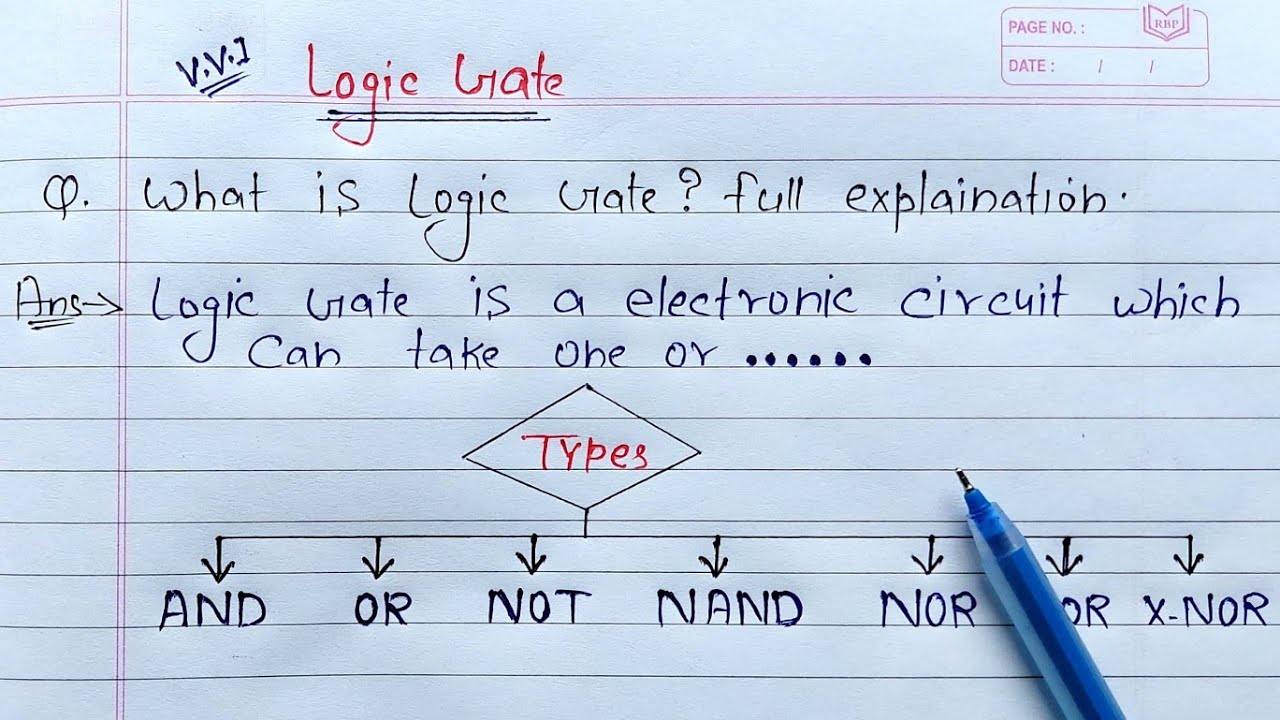 PAGE NO. :
RBP
DATE : / /
V.V.I Logic Gate
Q. What is Logic Gate? full explaination.
Ans→ Logic Gate is a electronic circuit which
Can take one or ......
Types
AND OR NOT NAND NOR OR X-NOR